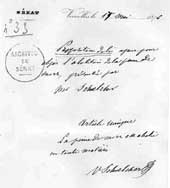 SÉNAT
Versailles le 17 mai 187
N° 33
ARCHIVES
DU
SÉNAT
Proposition de loi ayant pour
objet l'abolition de la peine de
mort, présentée par
Mr Schœlcher
Article unique
La peine de mort est abolie
en toute matière
V. Schœlcher